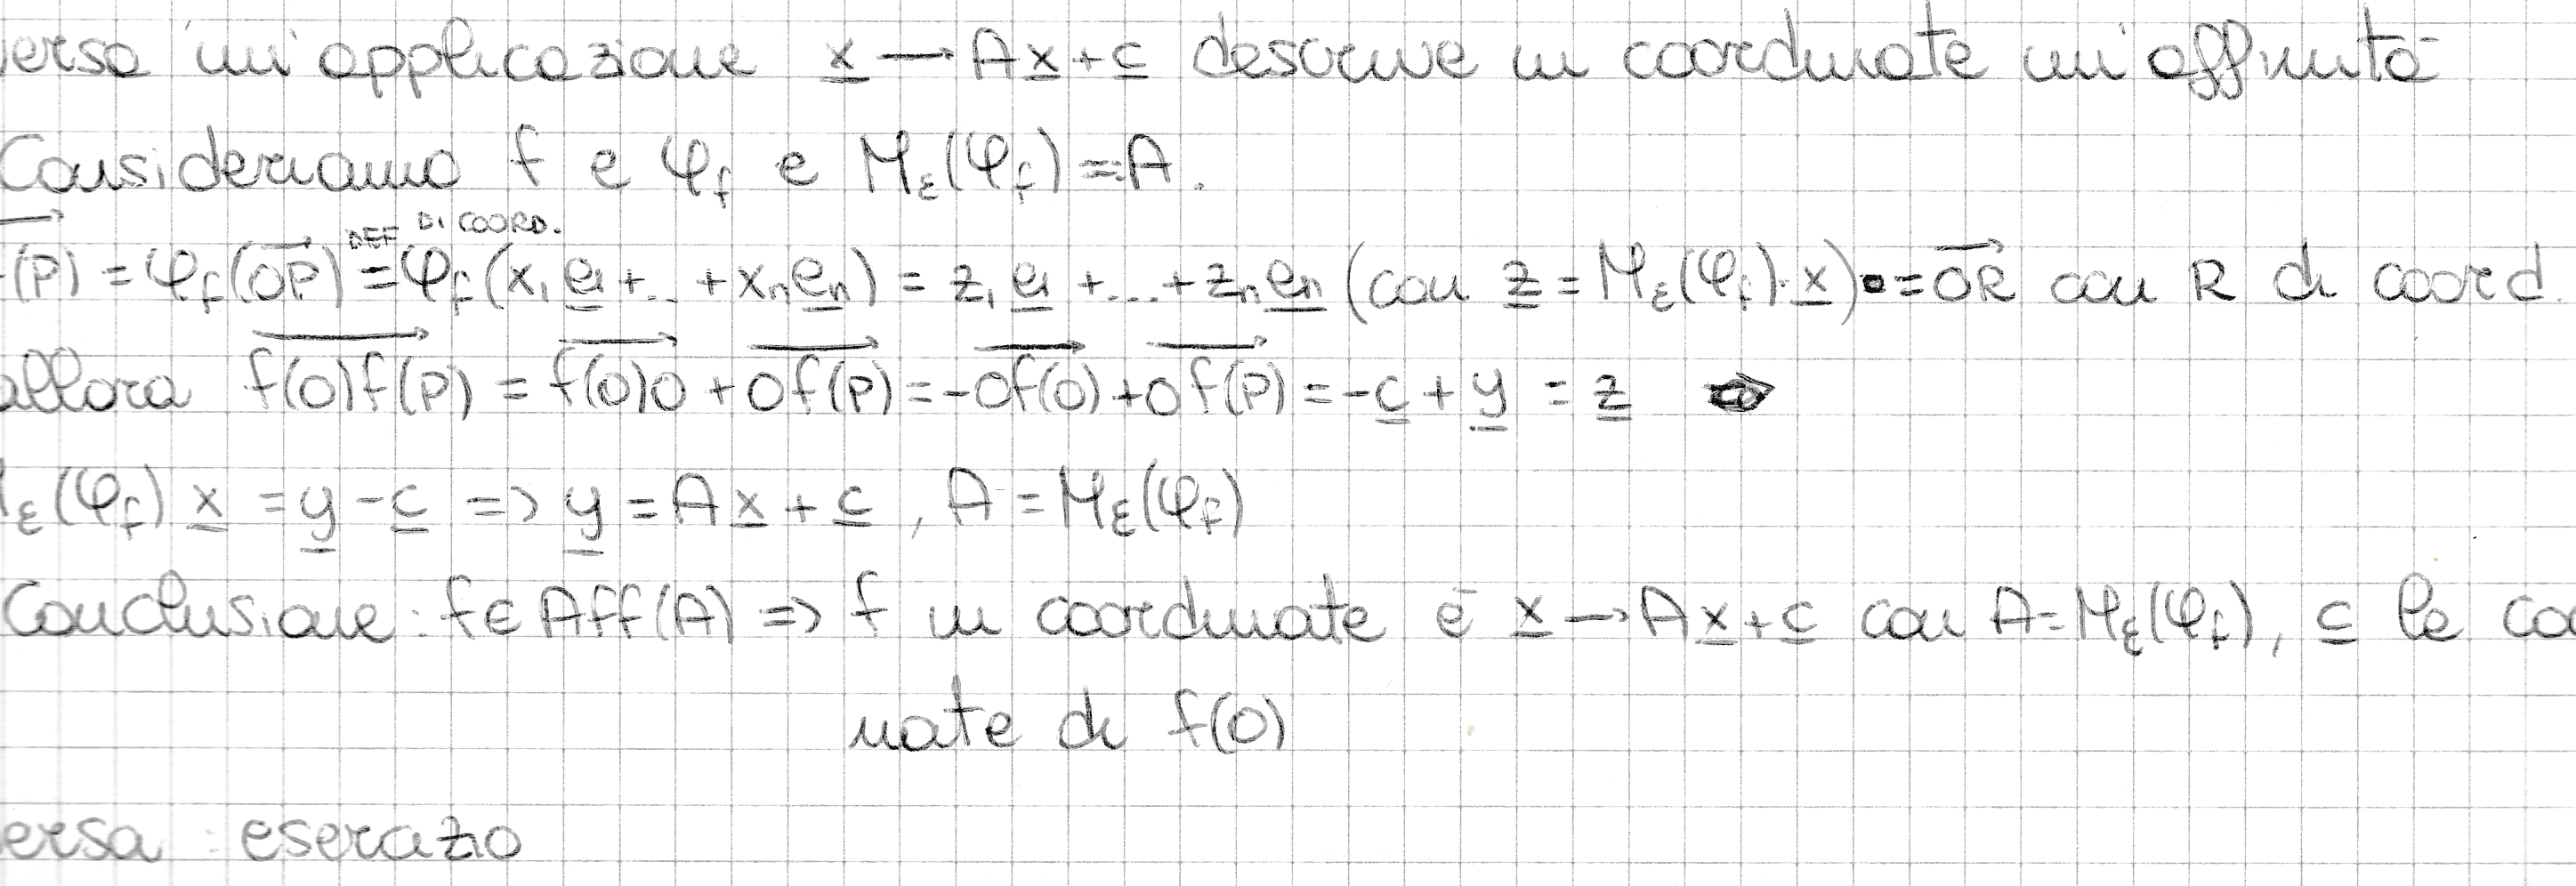 erso un'applicazione x → Ax + c descrive in coordinate un'affinità
Consideriamo f e φ_f e M_ε(φ_f) =: A.
DEF DI COORD.
(P) = φ_f(OP) = φ_f(x₁e₁ + ... + xₙeₙ) = z₁e₁ + ... + zₙeₙ (con z = M_ε(φ_f)·x) = OR con R di coord.
allora f(O)f(P) = f(O)O + Of(P) = -Of(O) + Of(P) = -c + y = z
M_ε(φ_f) x = y - c => y = Ax + c , A = M_ε(φ_f)
Conclusione: f ∈ Aff(A) => f in coordinate è x → Ax + c con A = M_ε(φ_f), c le coo
nate di f(O)
ersa : esercizio